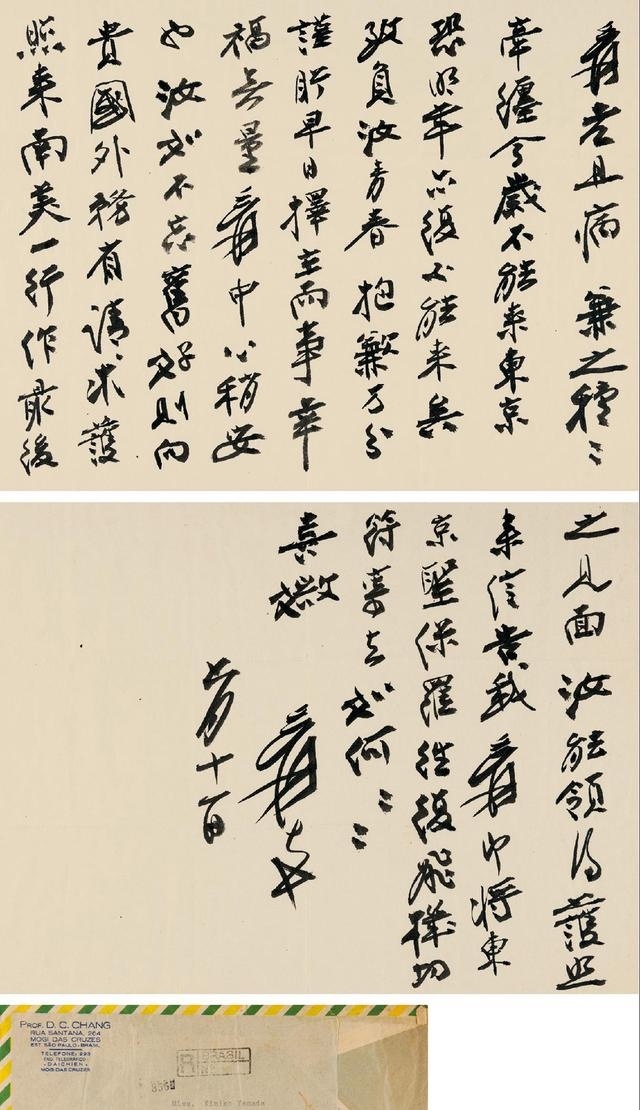 爰老且病兼之種〻
牽纏今歲不能來東京
恐明年亦復不能來矣
致負汝青春抱歉万分
謹盼早日擇主而事幸
福無量爰中心稍安
也汝如不忘舊好則向
貴國外務省請求護
照來南美一行作最後
之見面汝能領得護照
來信告我爰即將東
京聖保羅往復飛機切
符寄去如何〻〻
喜媺
爰
七月十一日
PROF. D. C. CHANG
RUA SANTANA, 264
MOGI DAS CRUZES
EST. SÃO PAULO - BRASIL
TELEFONE: 293
END. TELEGRAFICO
- DAICHIEN -
MOGI DAS CRUZES
R BRASIL
Nº
Miss. Kimiko Yamada